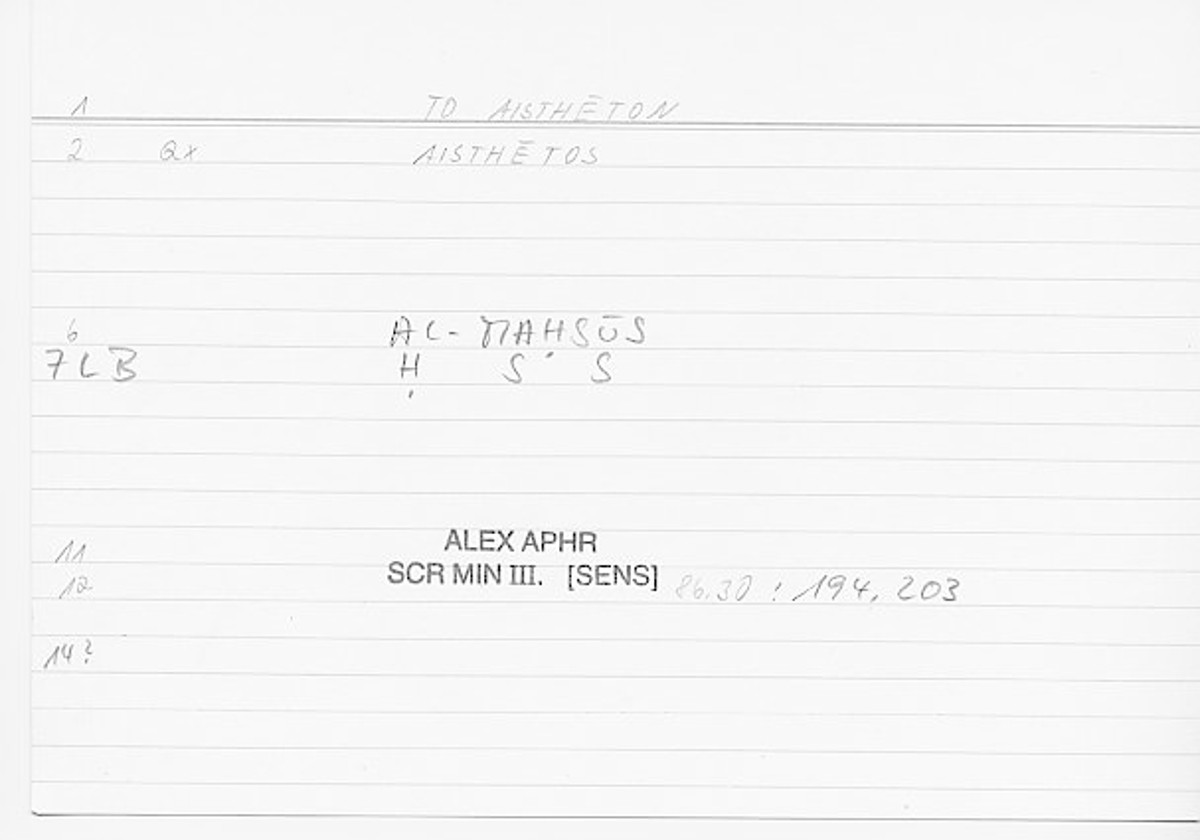 1 TO AISTHĒTON
2 Qx AISTHĒTOS
6 AL-MAḤSŪS
7LB Ḥ S S
11 ALEX APHR
12 SCR MIN III. [SENS] 86.30 : 194, 203
14?